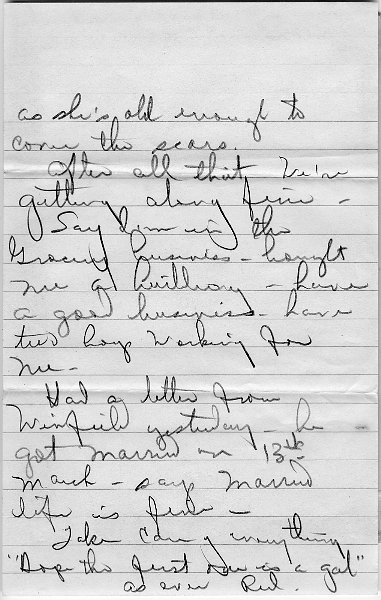 as she's old enough to
cover the scars.
After all that, We're
getting along fine -
Say I'm in the
Grocery business - bought
me a building - have
a good business - have
two boys working for
me -
Had a letter from
Winfield yesterday - he
got married on 13th
March - says married
life is fine -
Take care everything
"Hope the first one is a gal"
as ever Red.